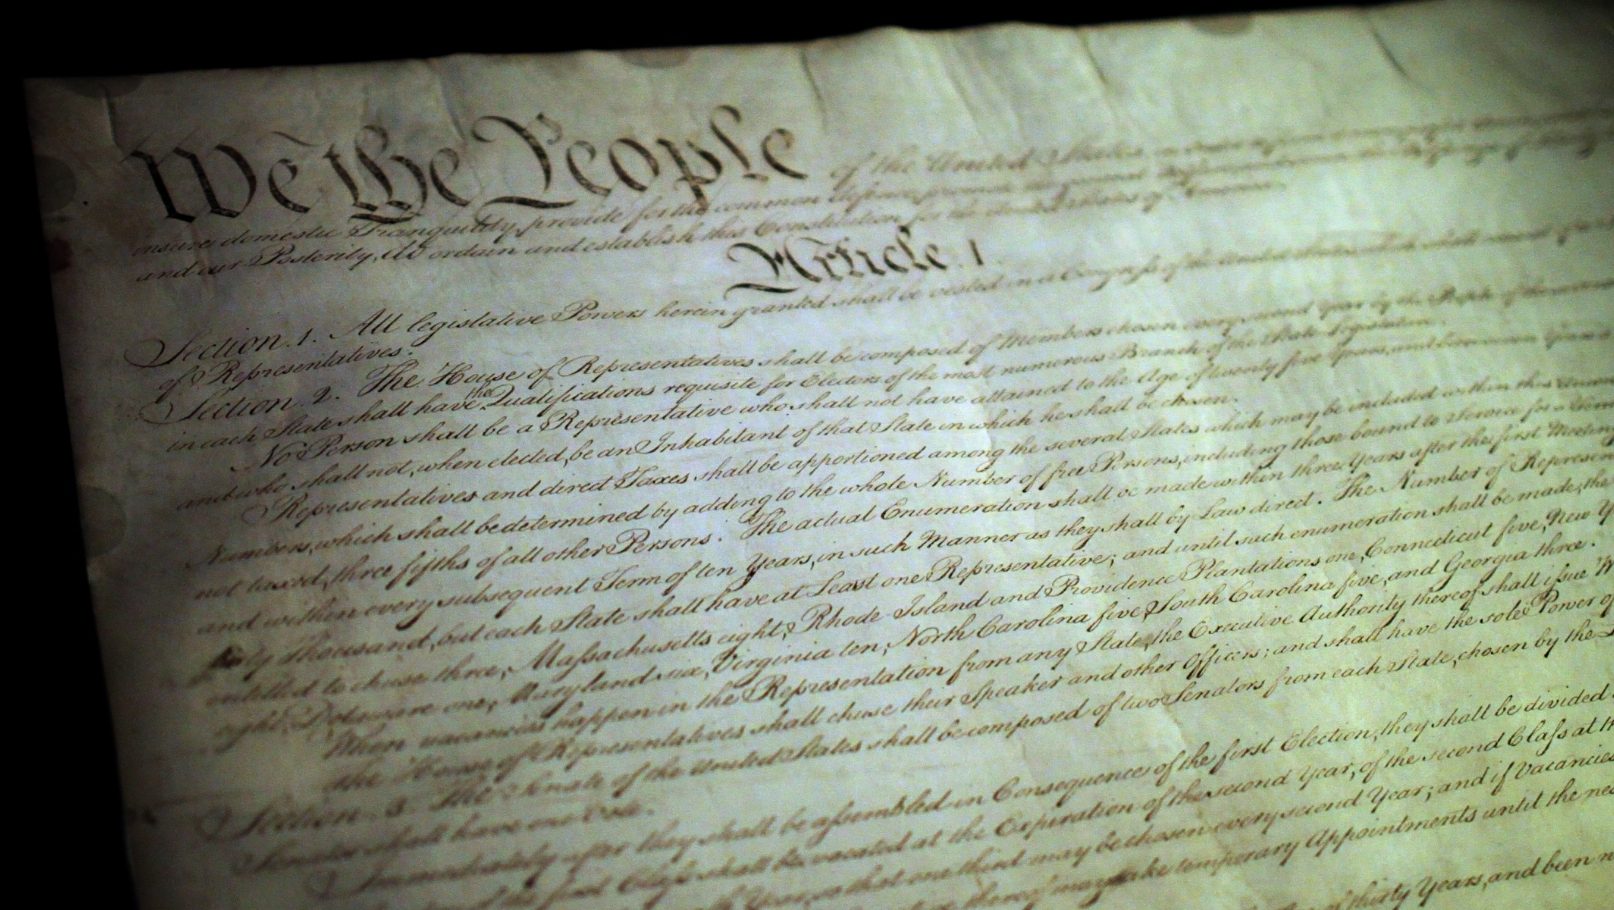 We the People of the United States
insure domestic Tranquility, provide for the common defence,
and our Posterity, do ordain and establish this Constitution for the United States of America.
Article. I.
Section. 1. All legislative Powers herein granted shall be vested in a Congress of the United States, which shall consist of a
of Representatives.
Section. 2. The House of Representatives shall be composed of Members chosen every second Year by the People of the several
in each State shall have the Qualifications requisite for Electors of the most numerous Branch of the State Legislature.
No Person shall be a Representative who shall not have attained to the Age of twenty five Years, and been seven Years
and who shall not, when elected, be an Inhabitant of that State in which he shall be chosen.
Representatives and direct Taxes shall be apportioned among the several States which may be included within this Union,
Numbers, which shall be determined by adding to the whole Number of free Persons, including those bound to Service for a Term
not taxed, three fifths of all other Persons. The actual Enumeration shall be made within three Years after the first Meeting
and within every subsequent Term of ten Years, in such Manner as they shall by Law direct. The Number of Represen
thirty Thousand, but each State shall have at Least one Representative; and until such enumeration shall be made, the
entitled to chuse three, Massachusetts eight, Rhode Island and Providence Plantations one, Connecticut five, New Y
eight, Delaware one, Maryland six, Virginia ten, North Carolina five, South Carolina five, and Georgia three.
When vacancies happen in the Representation from any State, the Executive Authority thereof shall issue W
the House of Representatives shall chuse their Speaker and other Officers; and shall have the sole Power of
Section. 3. The Senate of the United States shall be composed of two Senators from each State, chosen by the
Senator shall have one Vote.
Immediately after they shall be assembled in Consequence of the first Election, they shall be divided
of the first Class shall be vacated at the Expiration of the second Year, of the second Class at th
Year, so that one third may be chosen every second Year; and if Vacancies
thereof may make temporary Appointments until the ne
of thirty Years, and been n